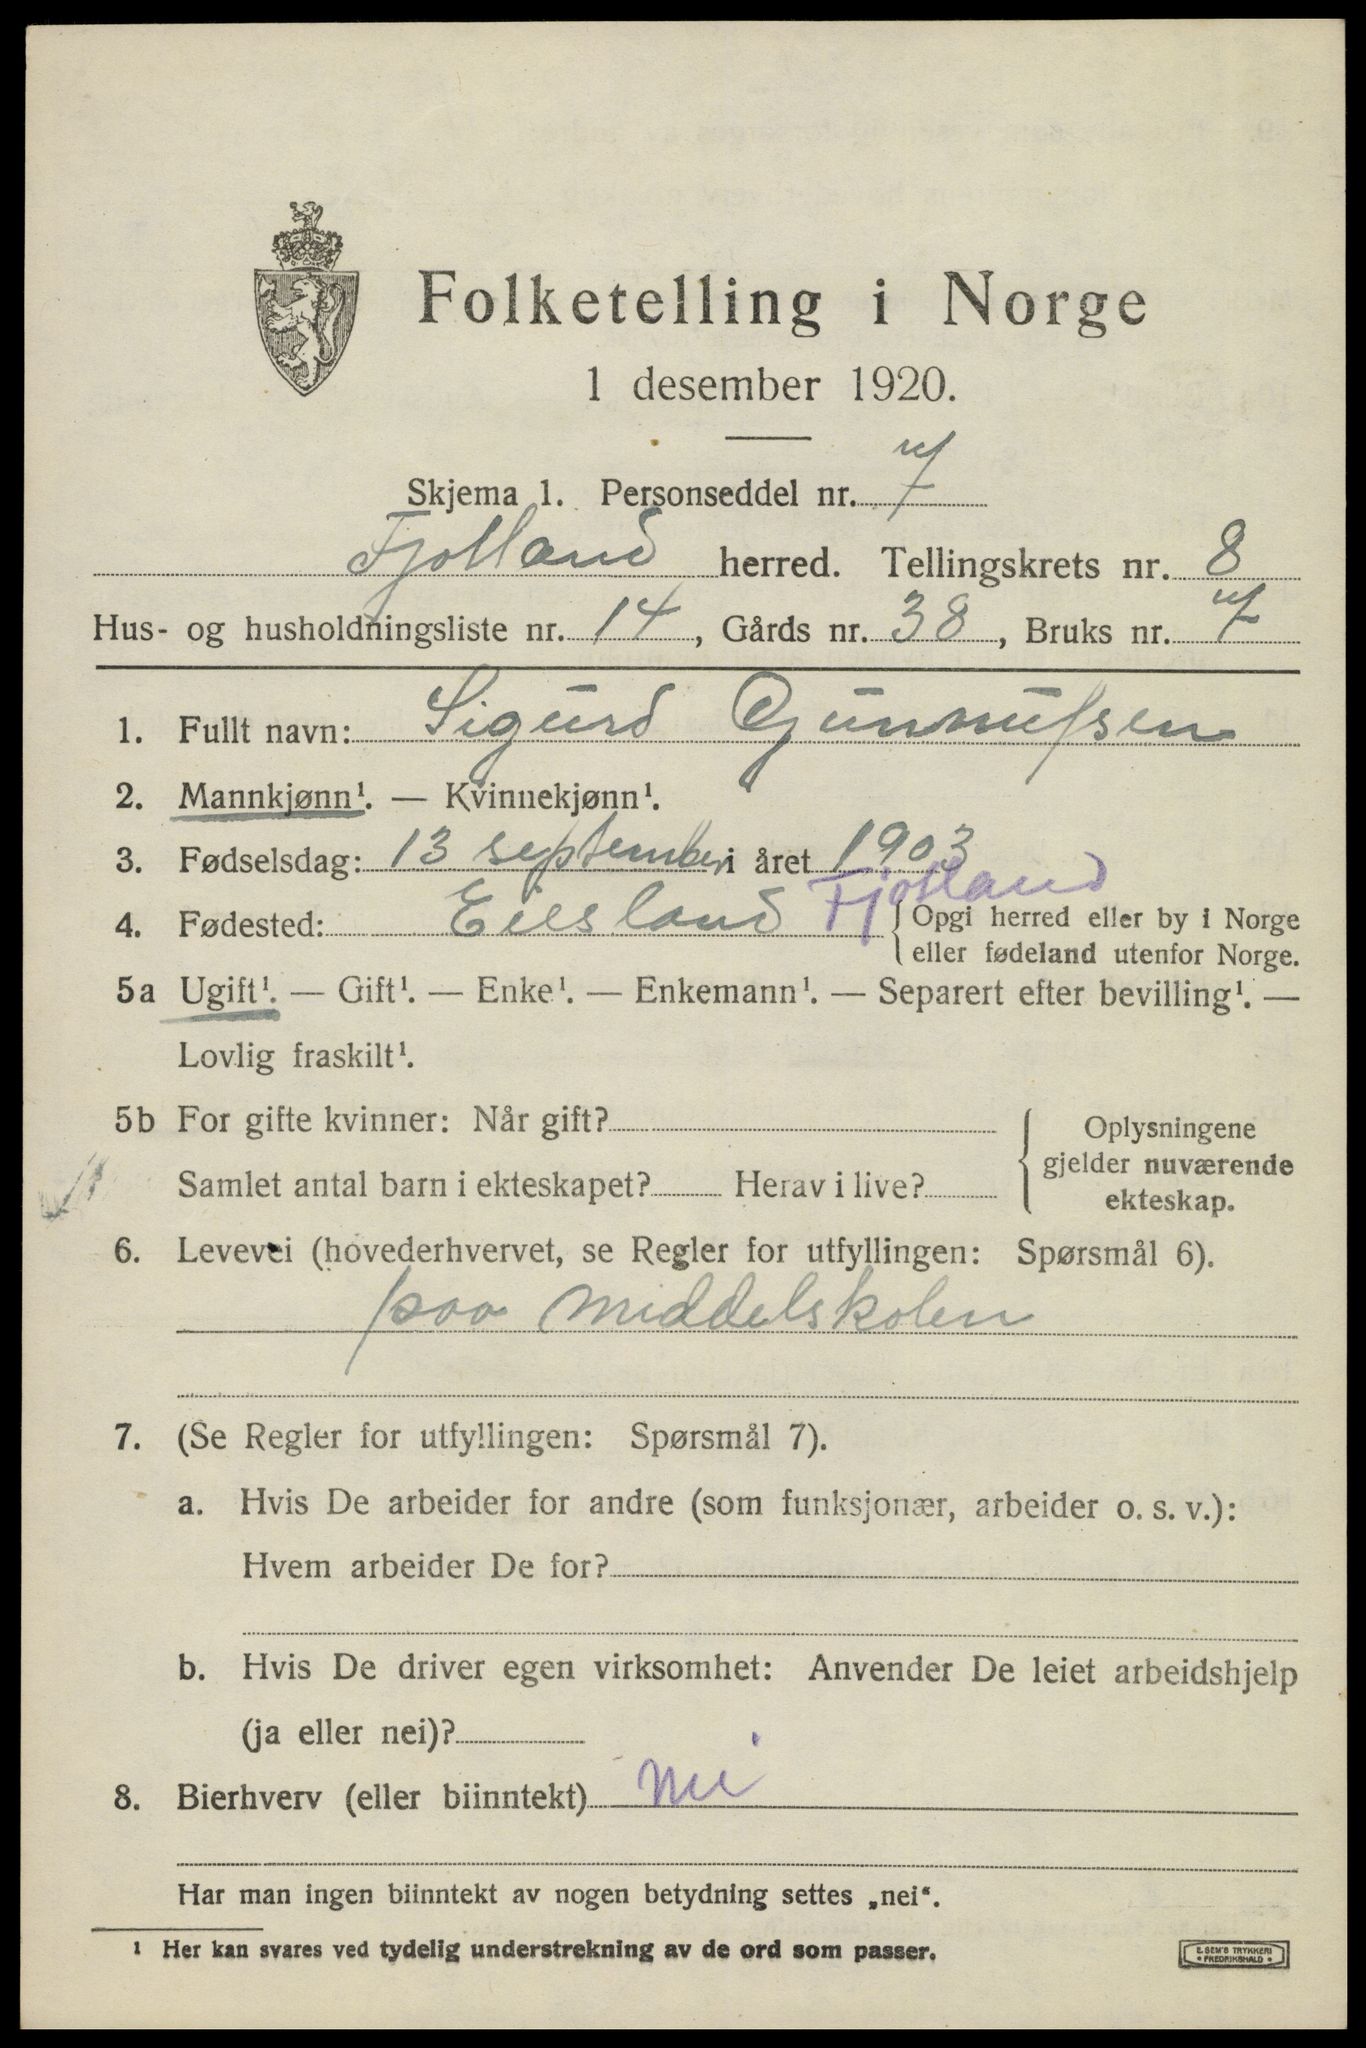 Folketelling i Norge
1 desember 1920.
Skjema 1. Personseddel nr. 7
Fjotland herred. Tellingskrets nr. 8
Hus- og husholdningsliste nr. 14, Gårds nr. 38, Bruks nr. 7
1. Fullt navn: Sigurd Gunnufsen
2. Mannkjønn¹. — Kvinnekjønn¹.
3. Fødselsdag: 13 september i året 1903
4. Fødested: Eiesland Fjotland { Opgi herred eller by i Norge
eller fødeland utenfor Norge.
5a Ugift¹. — Gift¹. — Enke¹. — Enkemann¹. — Separert efter bevilling¹. —
Lovlig fraskilt¹.
5b For gifte kvinner: Når gift?
Samlet antal barn i ekteskapet? Herav i live?
{ Oplysningene
gjelder nuværende
ekteskap.
6. Levevei (hovederhvervet, se Regler for utfyllingen: Spørsmål 6).
paa middelskolen
7. (Se Regler for utfyllingen: Spørsmål 7).
a. Hvis De arbeider for andre (som funksjonær, arbeider o. s. v.):
Hvem arbeider De for?
b. Hvis De driver egen virksomhet: Anvender De leiet arbeidshjelp
(ja eller nei)?
8. Bierhverv (eller biinntekt) nei
Har man ingen biinntekt av nogen betydning settes „nei“.
¹ Her kan svares ved tydelig understrekning av de ord som passer.
E. SEM'S TRYKKERI
• FREDRIKSHALD •